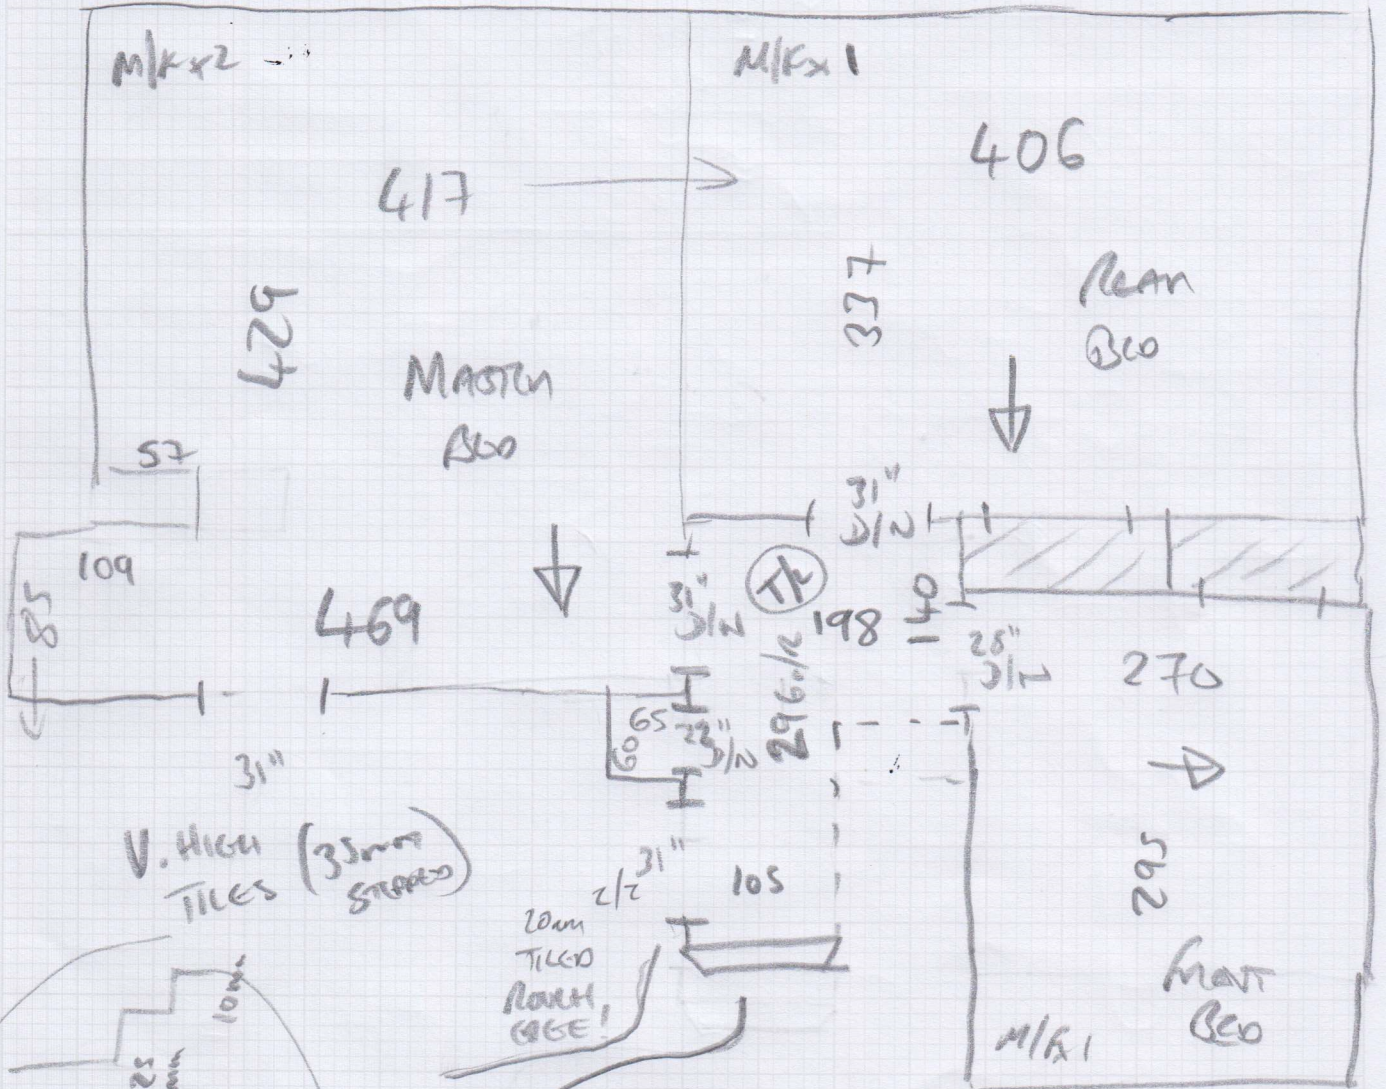 M/Fx2
M/Fx1
417
406
429
337
REAR
BED
MASTER
BED
57
31"
D/N
109
85
469
31"
D/N
T/R
198
140
28"
D/N
270
296
65
60
D/N
31"
V. HIGH
TILES
(35mm
STEPPED)
31"
105
295
20mm
TILED
ROUGH
EDGE!
FRONT
BED
M/Fx1
10mm
25
mm